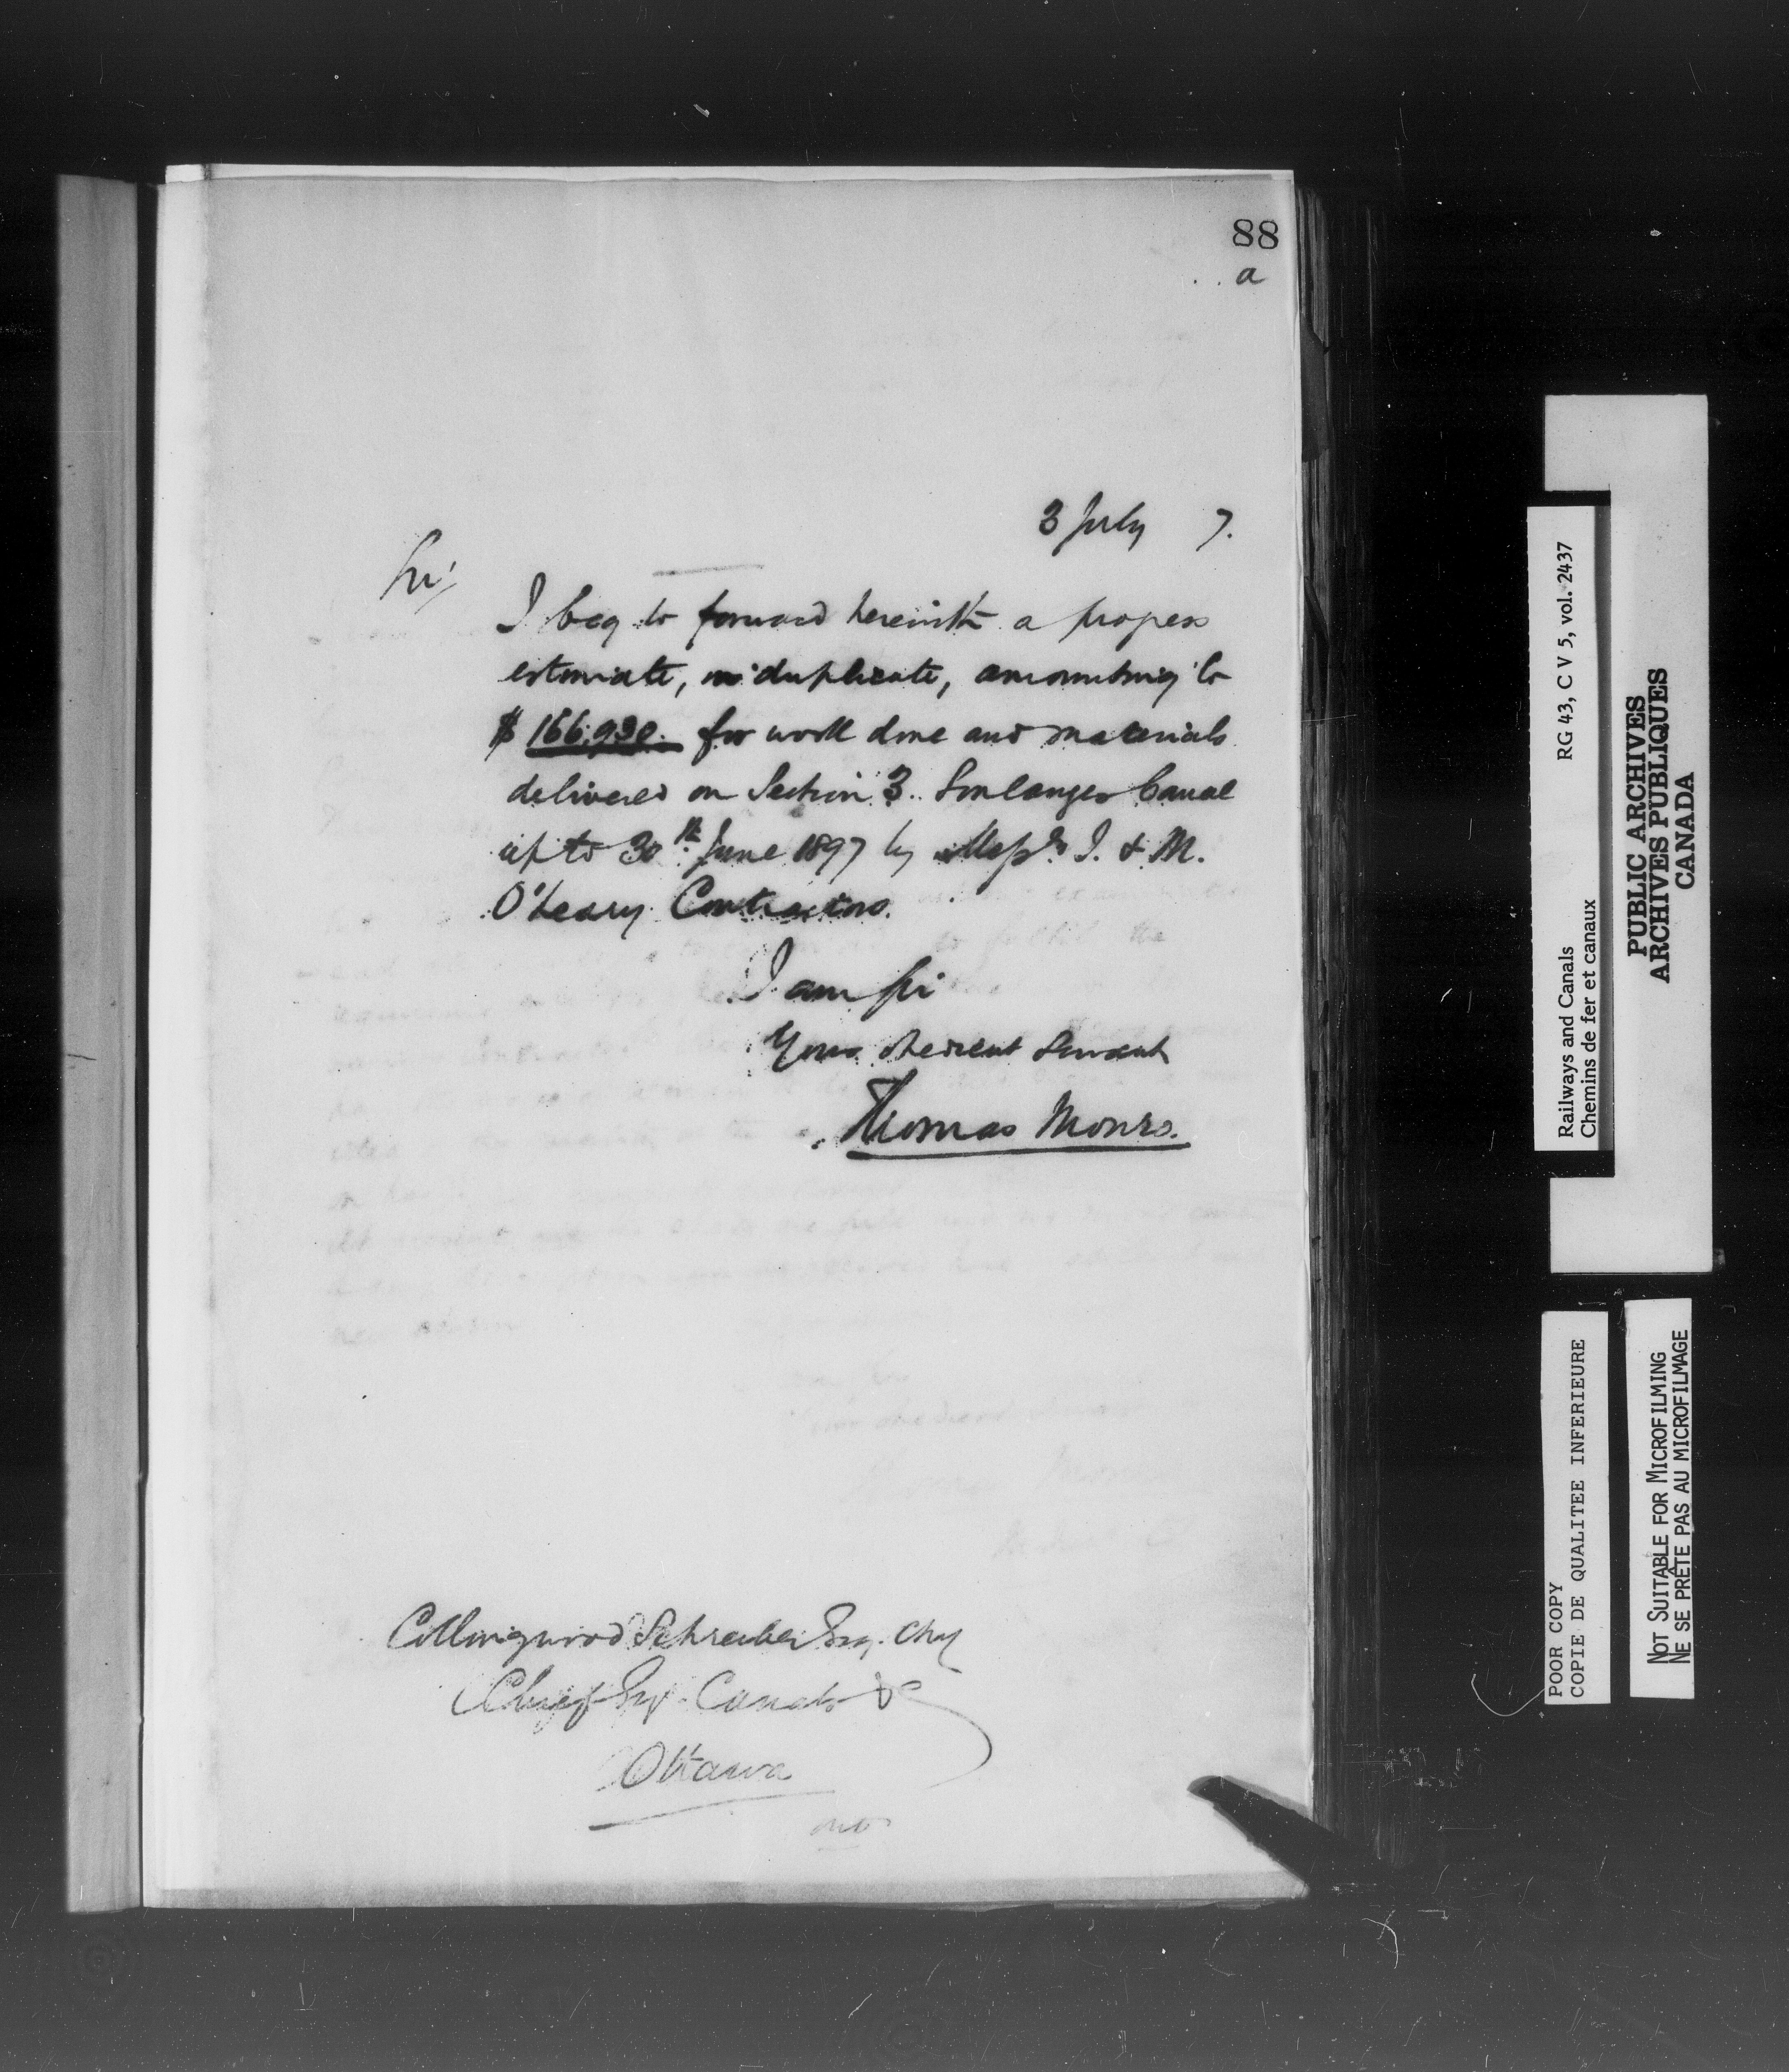 88
a
3 July 7.
Sir,
I beg to forward herewith a progress
estimate, in duplicate, amounting to
$ 166,930. for work done and materials
delivered on Section 3. Soulanges Canal
up to 30th June 1897 by Messrs J. & M.
O'Leary Contractors.
I am Sir
Your obedient Servant
Thomas Monro.
Collingwood Schreiber Esq. CMG
Chief Engr. Canals &c
Ottawa
Railways and Canals RG 43, C V 5, vol. 2437
Chemins de fer et canaux
PUBLIC ARCHIVES
ARCHIVES PUBLIQUES
CANADA
POOR COPY
COPIE DE QUALITEE INFERIEURE
NOT SUITABLE FOR MICROFILMING
NE SE PRÊTE PAS AU MICROFILMAGE